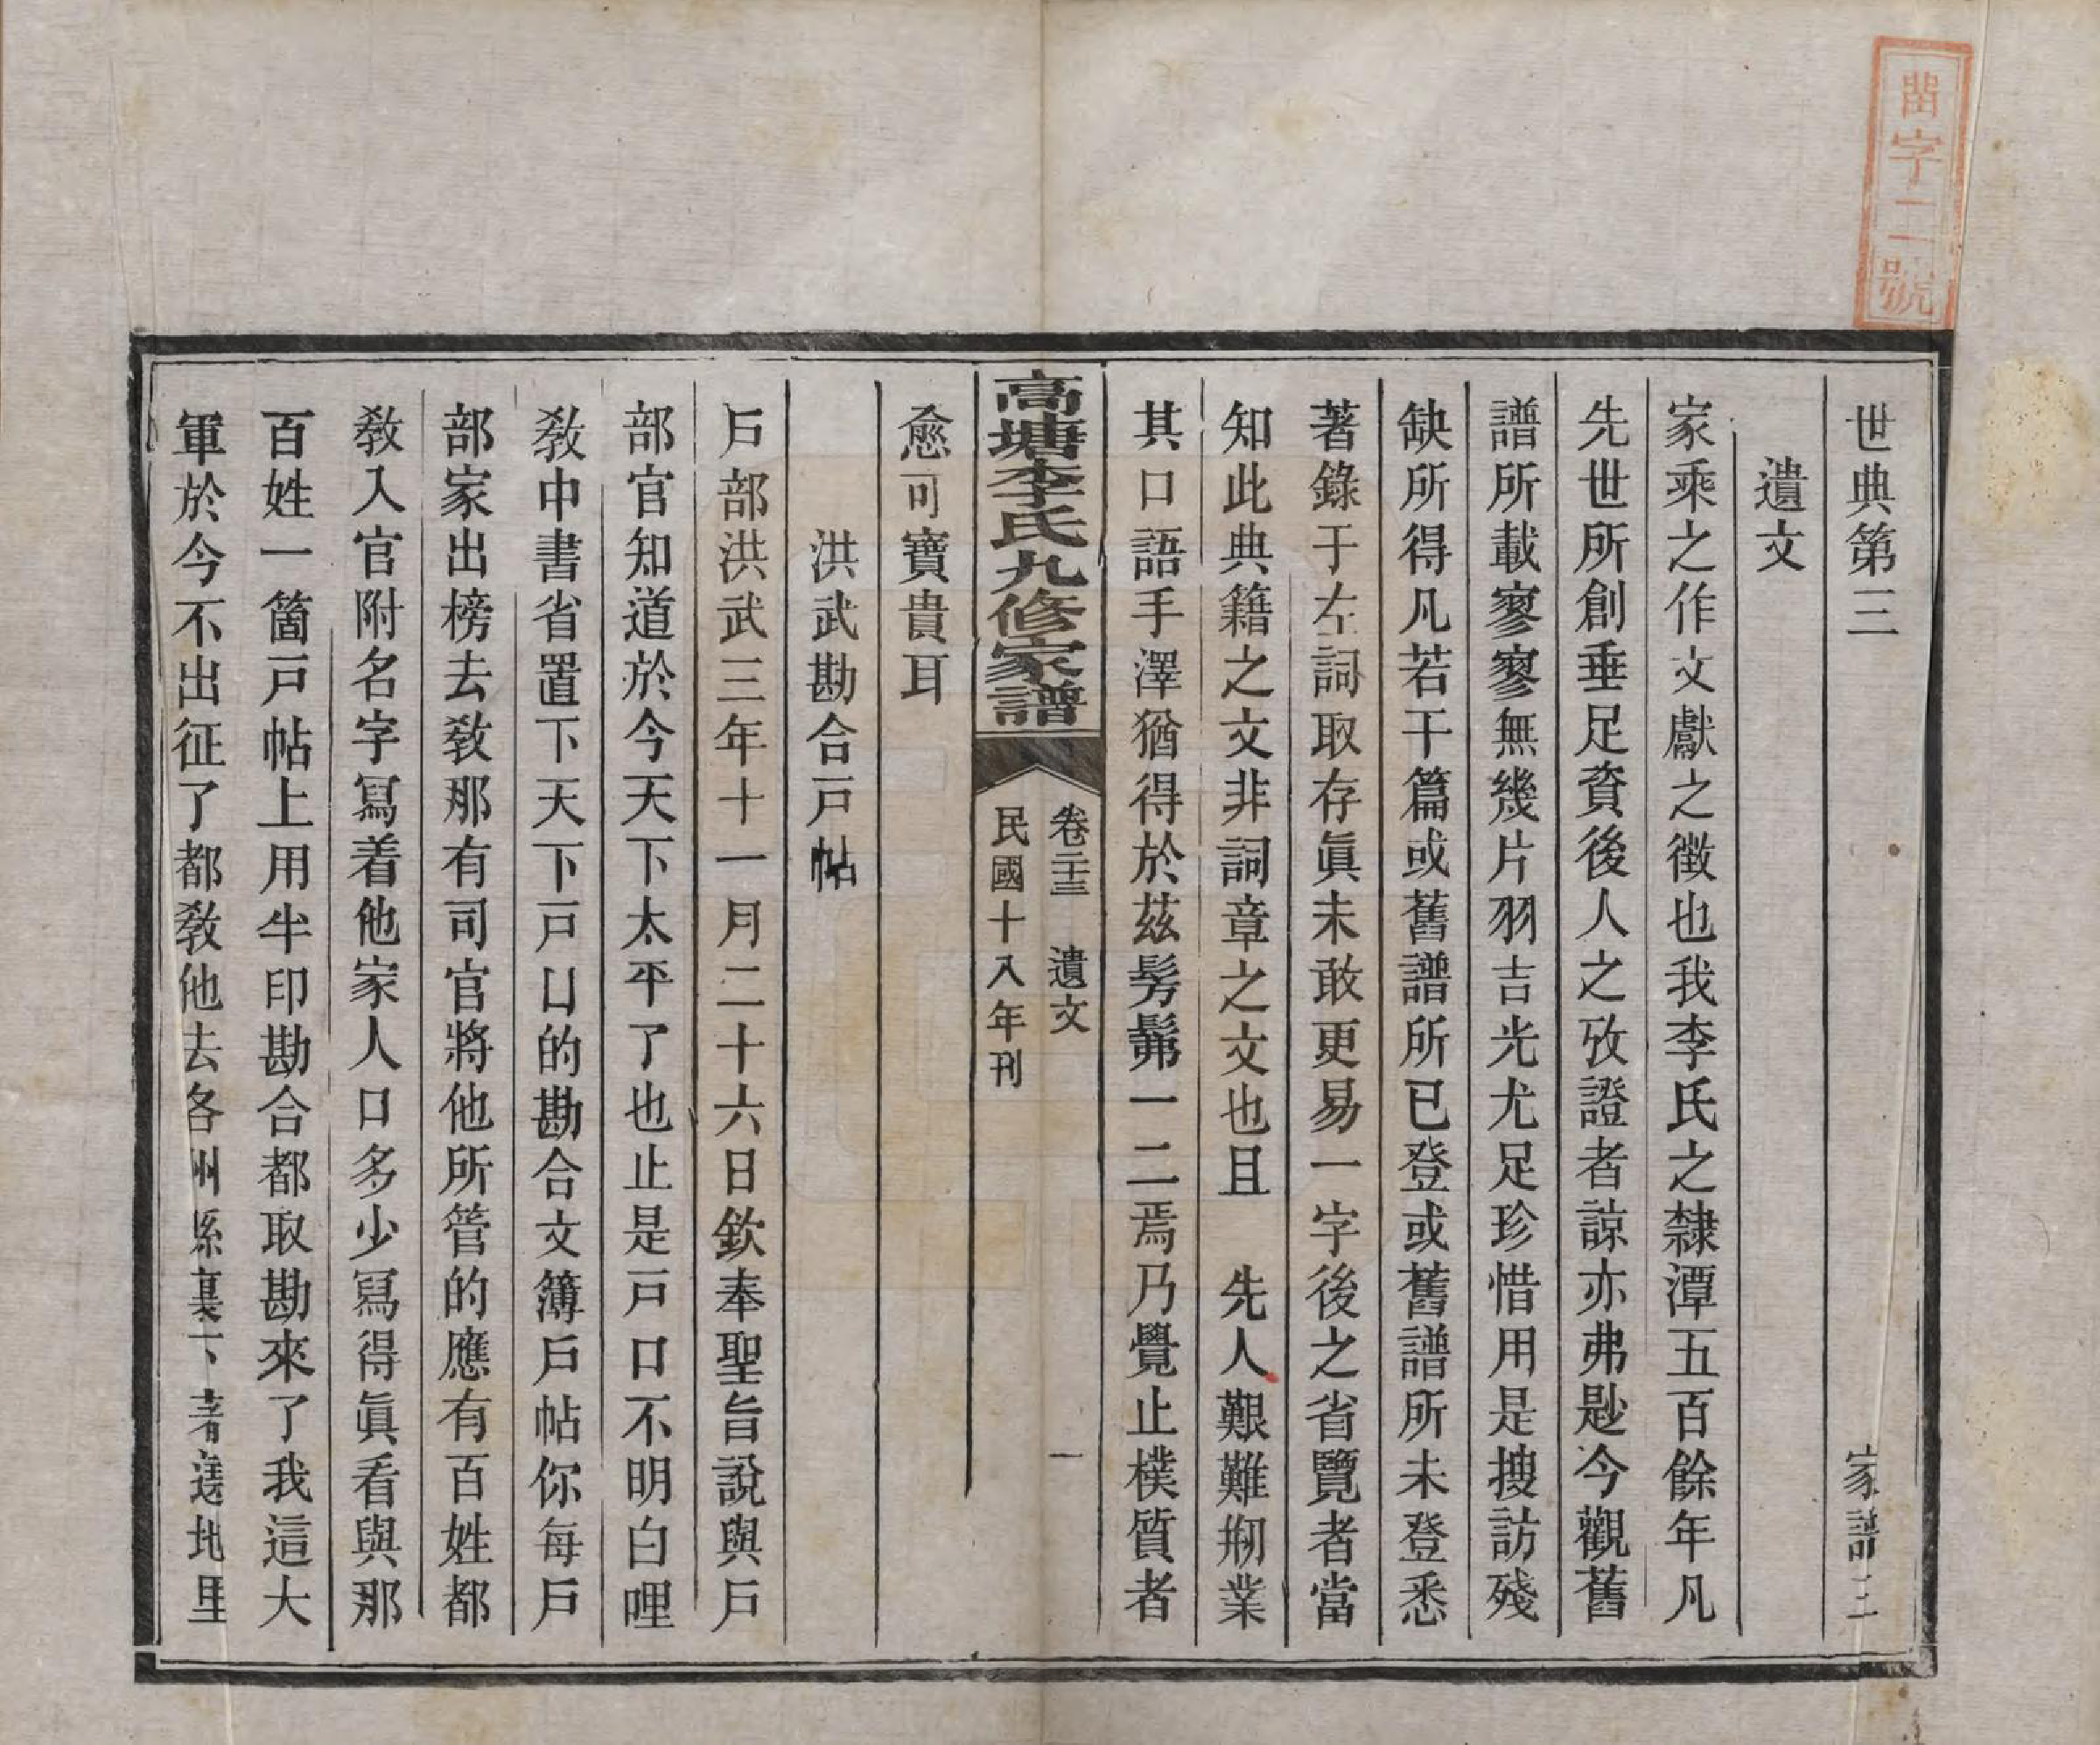 世典第三　家譜三
遺文
家乘之作文獻之徵也我李氏之隸潭五百餘年凡
先世所創垂足資後人之攷證者諒亦弗尟今觀舊
譜所載寥寥無幾片羽吉光尤足珍惜用是搜訪殘
缺所得凡若干篇或舊譜所已登或舊譜所未登悉
著錄于左詞取存眞未敢更易一字後之省覽者當
知此典籍之文非詞章之文也且　先人艱難剏業
其口語手澤猶得於茲髣髴一二焉乃覺止樸質者
高塘李氏九修家譜
卷二十三　遺文　一
民國十八年刊
愈可寶貴耳
洪武勘合戸帖
戸部洪武三年十一月二十六日欽奉聖旨說與戸
部官知道於今天下太平了也止是戸口不明白哩
敎中書省置下天下戸口的勘合文簿戸帖你每戸
部家出榜去敎那有司官將他所管的應有百姓都
敎入官附名字寫着他家人口多少寫得眞看與那
百姓一箇戸帖上用半印勘合都取勘來了我這大
軍於今不出征了都敎他去各州縣裏下著遶地里
字二號